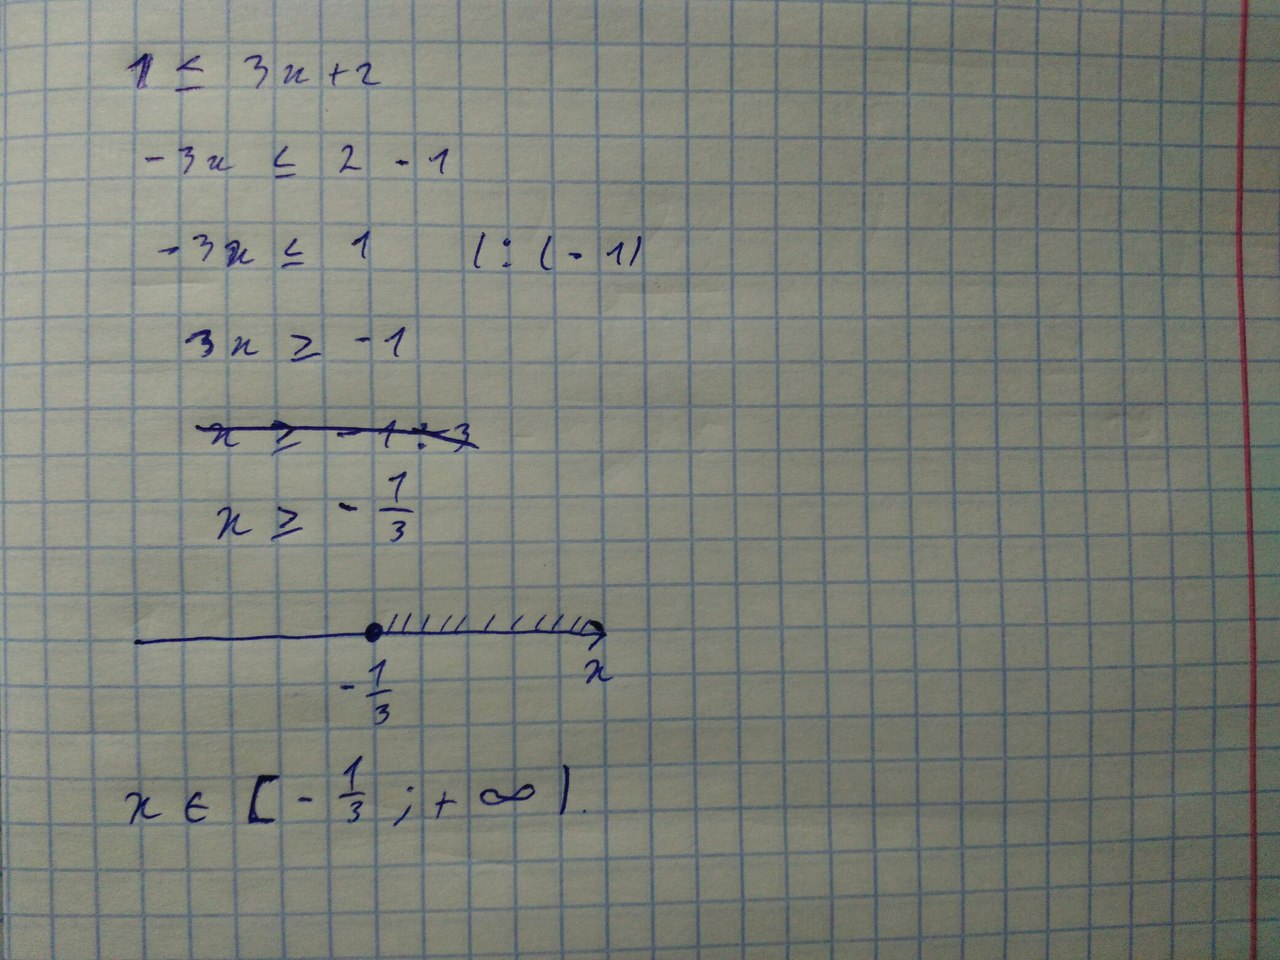 1 ≤ 3x + 2
-3x ≤ 2 - 1
-3x ≤ 1 |:(-1)
3x ≥ -1
x ≥ -1 : 3
x ≥ - 1/3
- 1/3 x
x ∈ [- 1/3 ; + ∞).